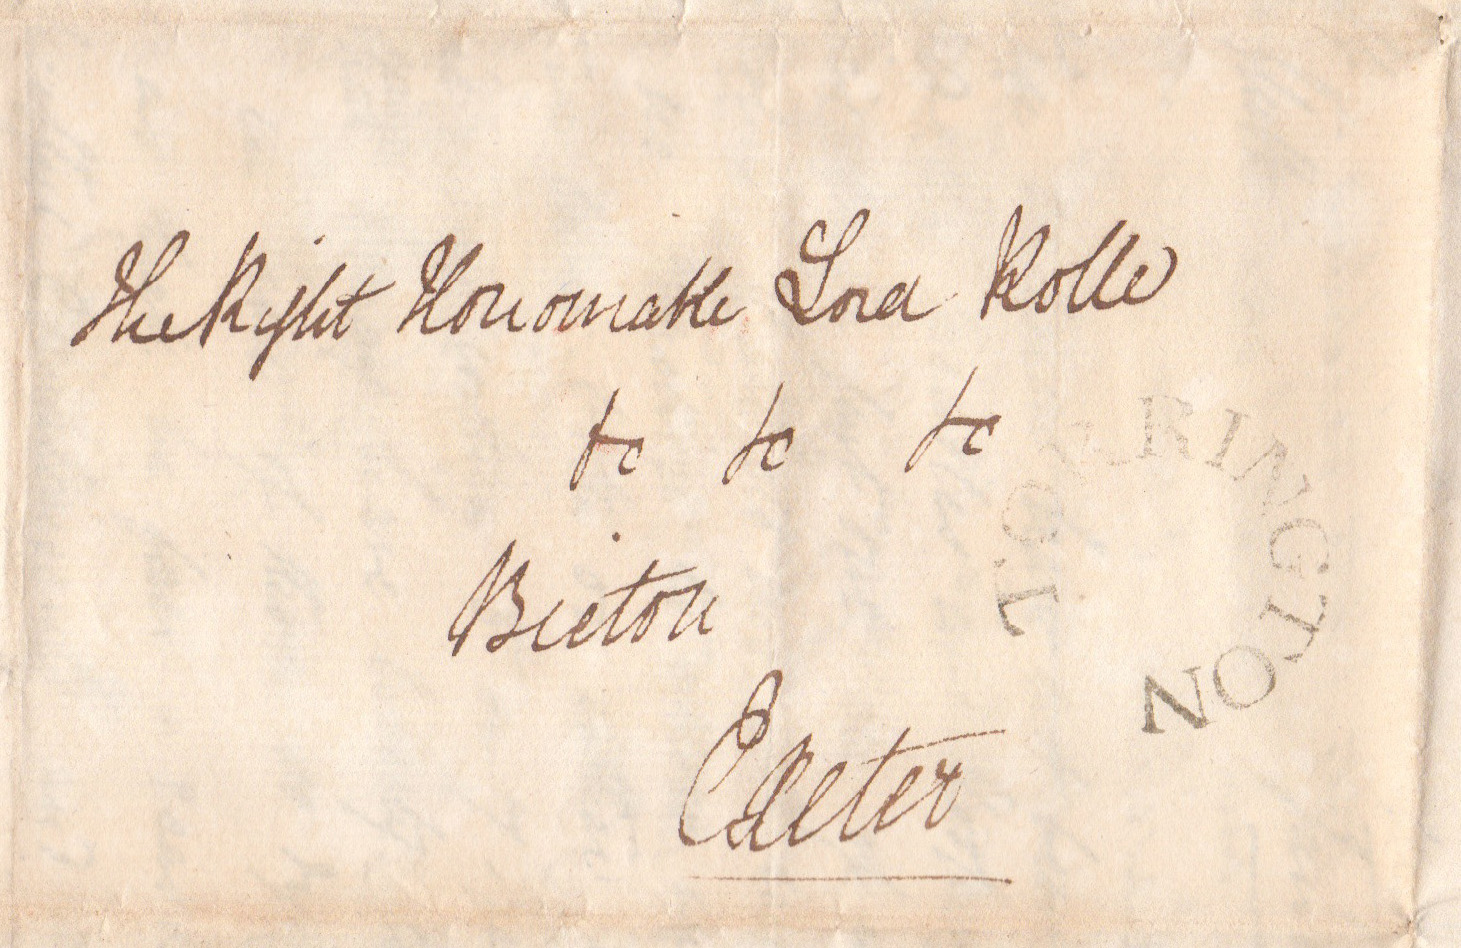 The Right Honourable Lord Rolle
&c &c &c
Bicton
Exeter
TORRINGTON